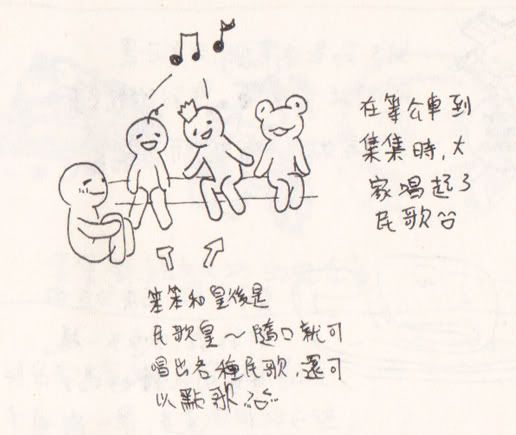 在等公車到
集集時,大
家唱起了
民歌
笨笨和皇後是
民歌皇~隨口就可
唱出各種民歌,還可
以點歌